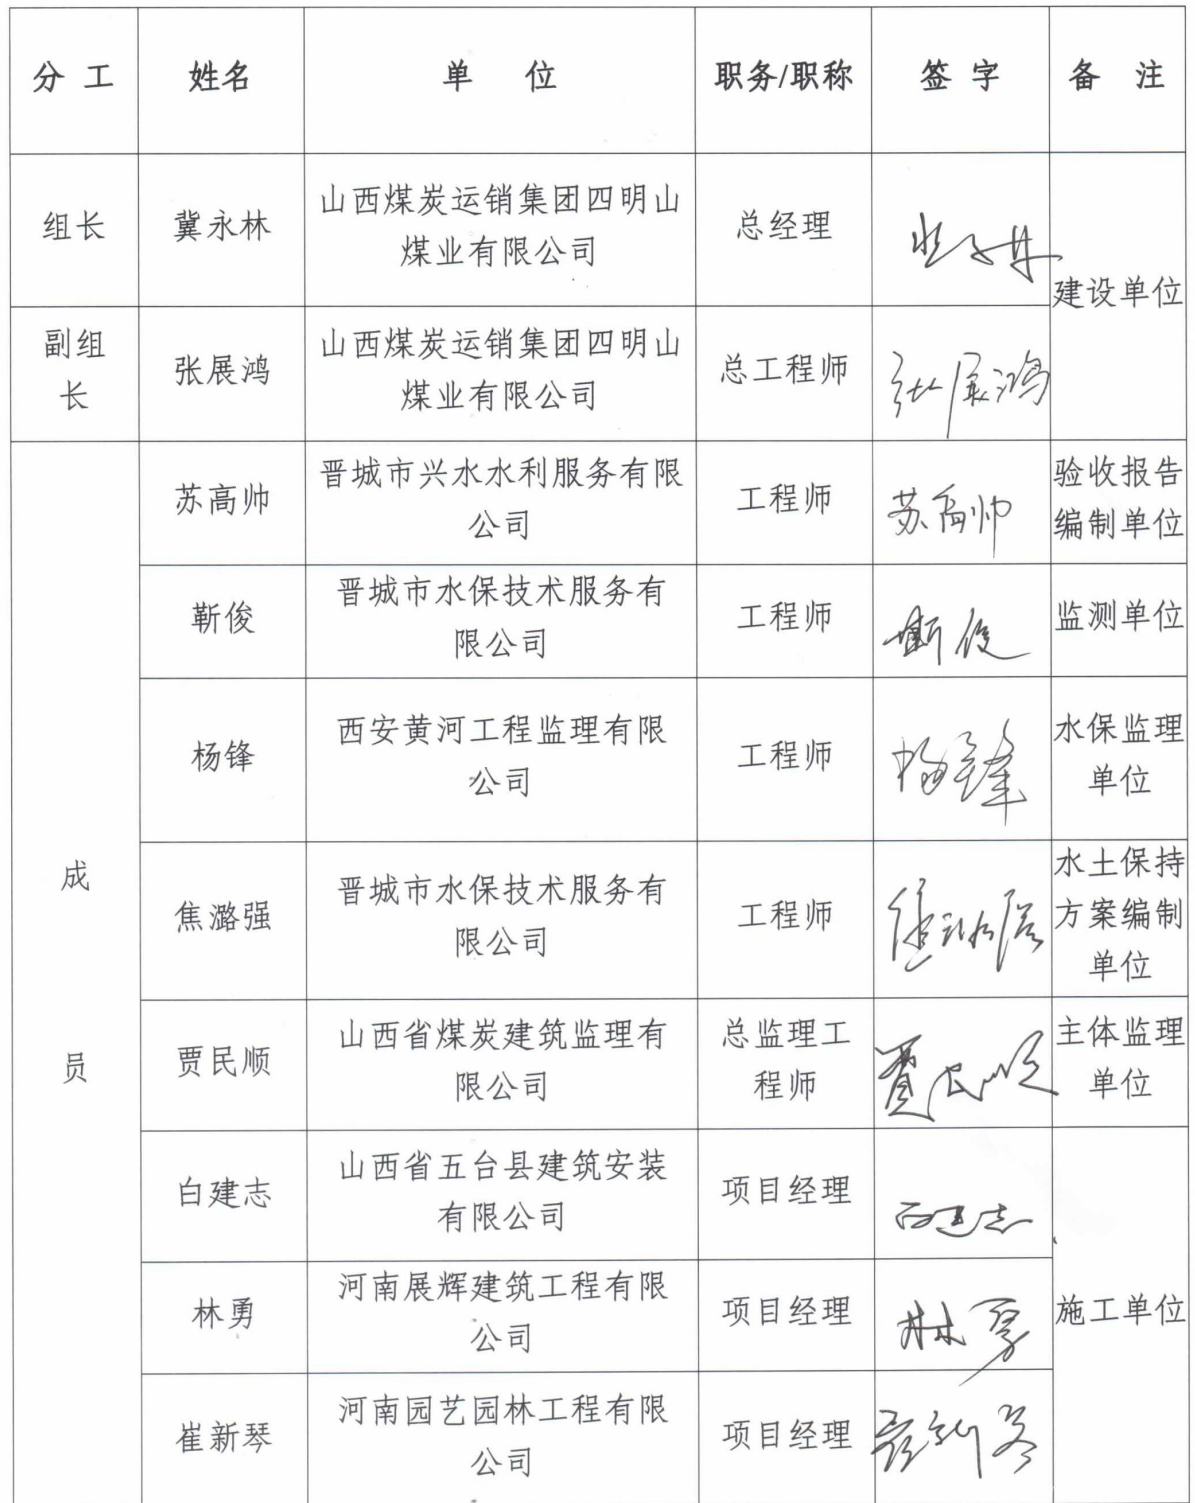 分工 姓名 单位 职务/职称 签字 备注
组长 冀永林 山西煤炭运销集团四明山
煤业有限公司 总经理
建设单位
副组
长 张展鸿 山西煤炭运销集团四明山
煤业有限公司 总工程师 张展鸿
成
员
苏高帅 晋城市兴水水利服务有限
公司 工程师 苏高帅 验收报告
编制单位
靳俊 晋城市水保技术服务有
限公司 工程师 靳俊 监测单位
杨锋 西安黄河工程监理有限
公司 工程师 杨锋 水保监理
单位
焦潞强 晋城市水保技术服务有
限公司 工程师 水土保持
方案编制
单位
贾民顺 山西省煤炭建筑监理有
限公司 总监理工
程师 贾民顺 主体监理
单位
白建志 山西省五台县建筑安装
有限公司 项目经理 白建志
施工单位
林勇 河南展辉建筑工程有限
公司 项目经理 林勇
崔新琴 河南园艺园林工程有限
公司 项目经理